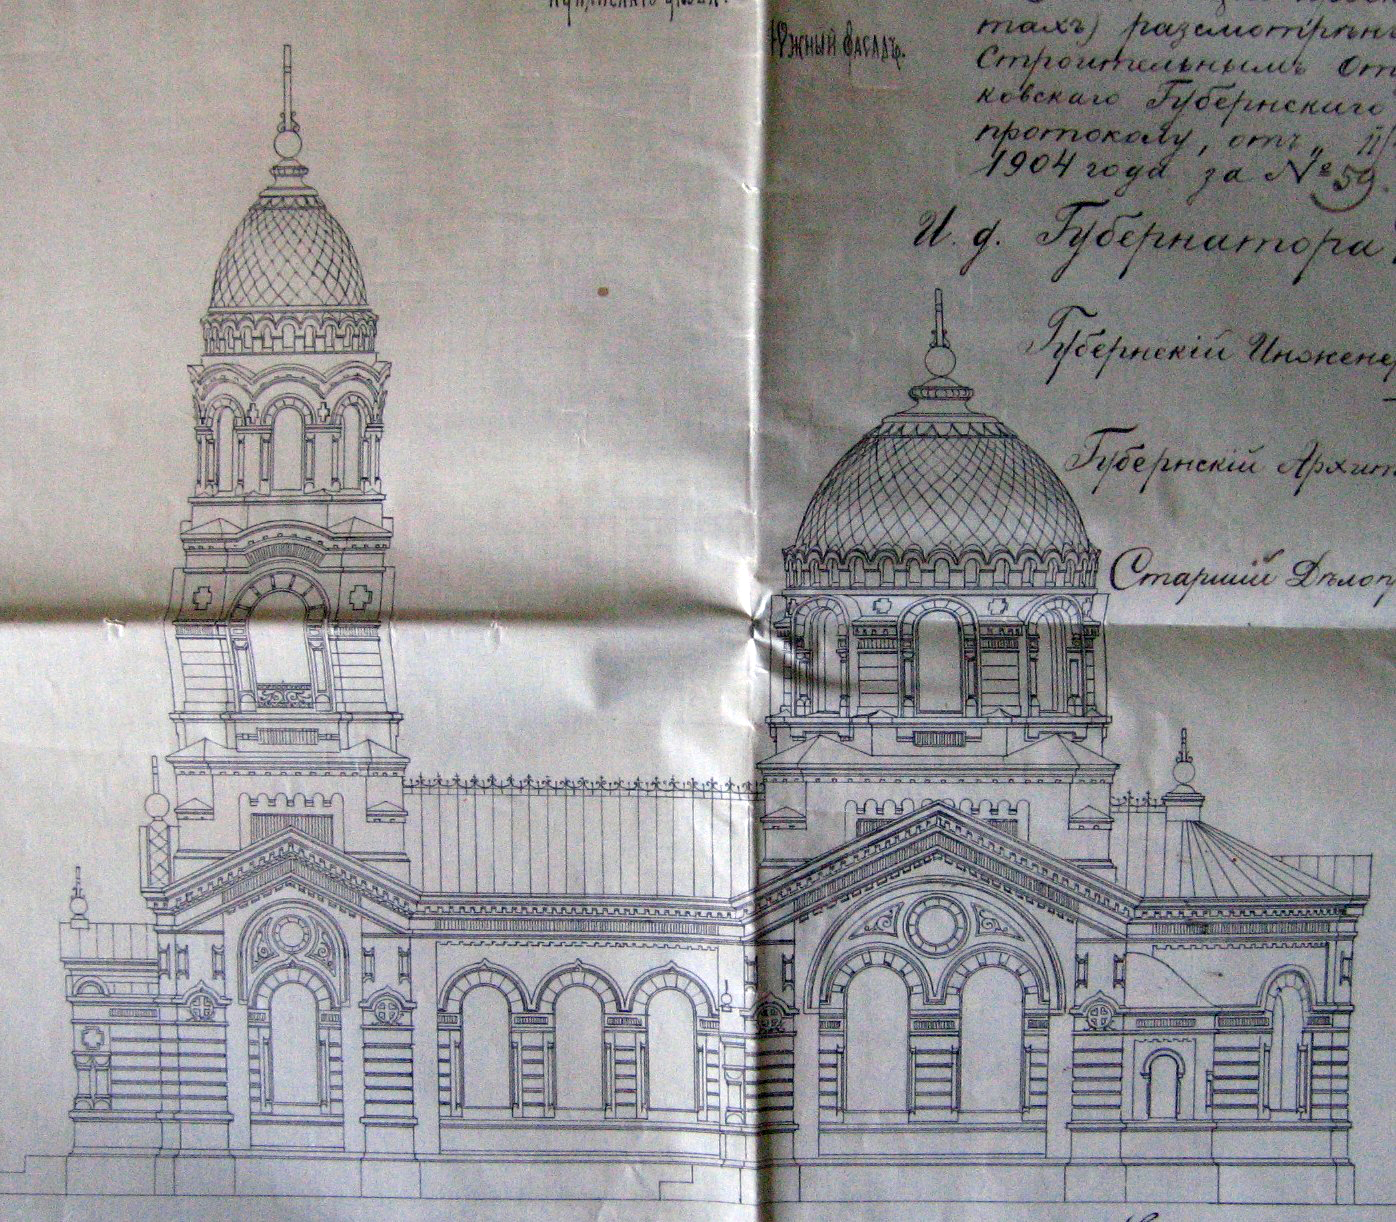 уѣзда.
Южный фасадъ.
тахъ) разсмотрѣнъ
Строительнымъ Отд
ковскаго Губернскаго
протоколу, отъ „ 11
1904 года за № 59.
И. д. Губернатора
Губернскій Инженер
Губернскій Архит
Старшій Дѣлопр